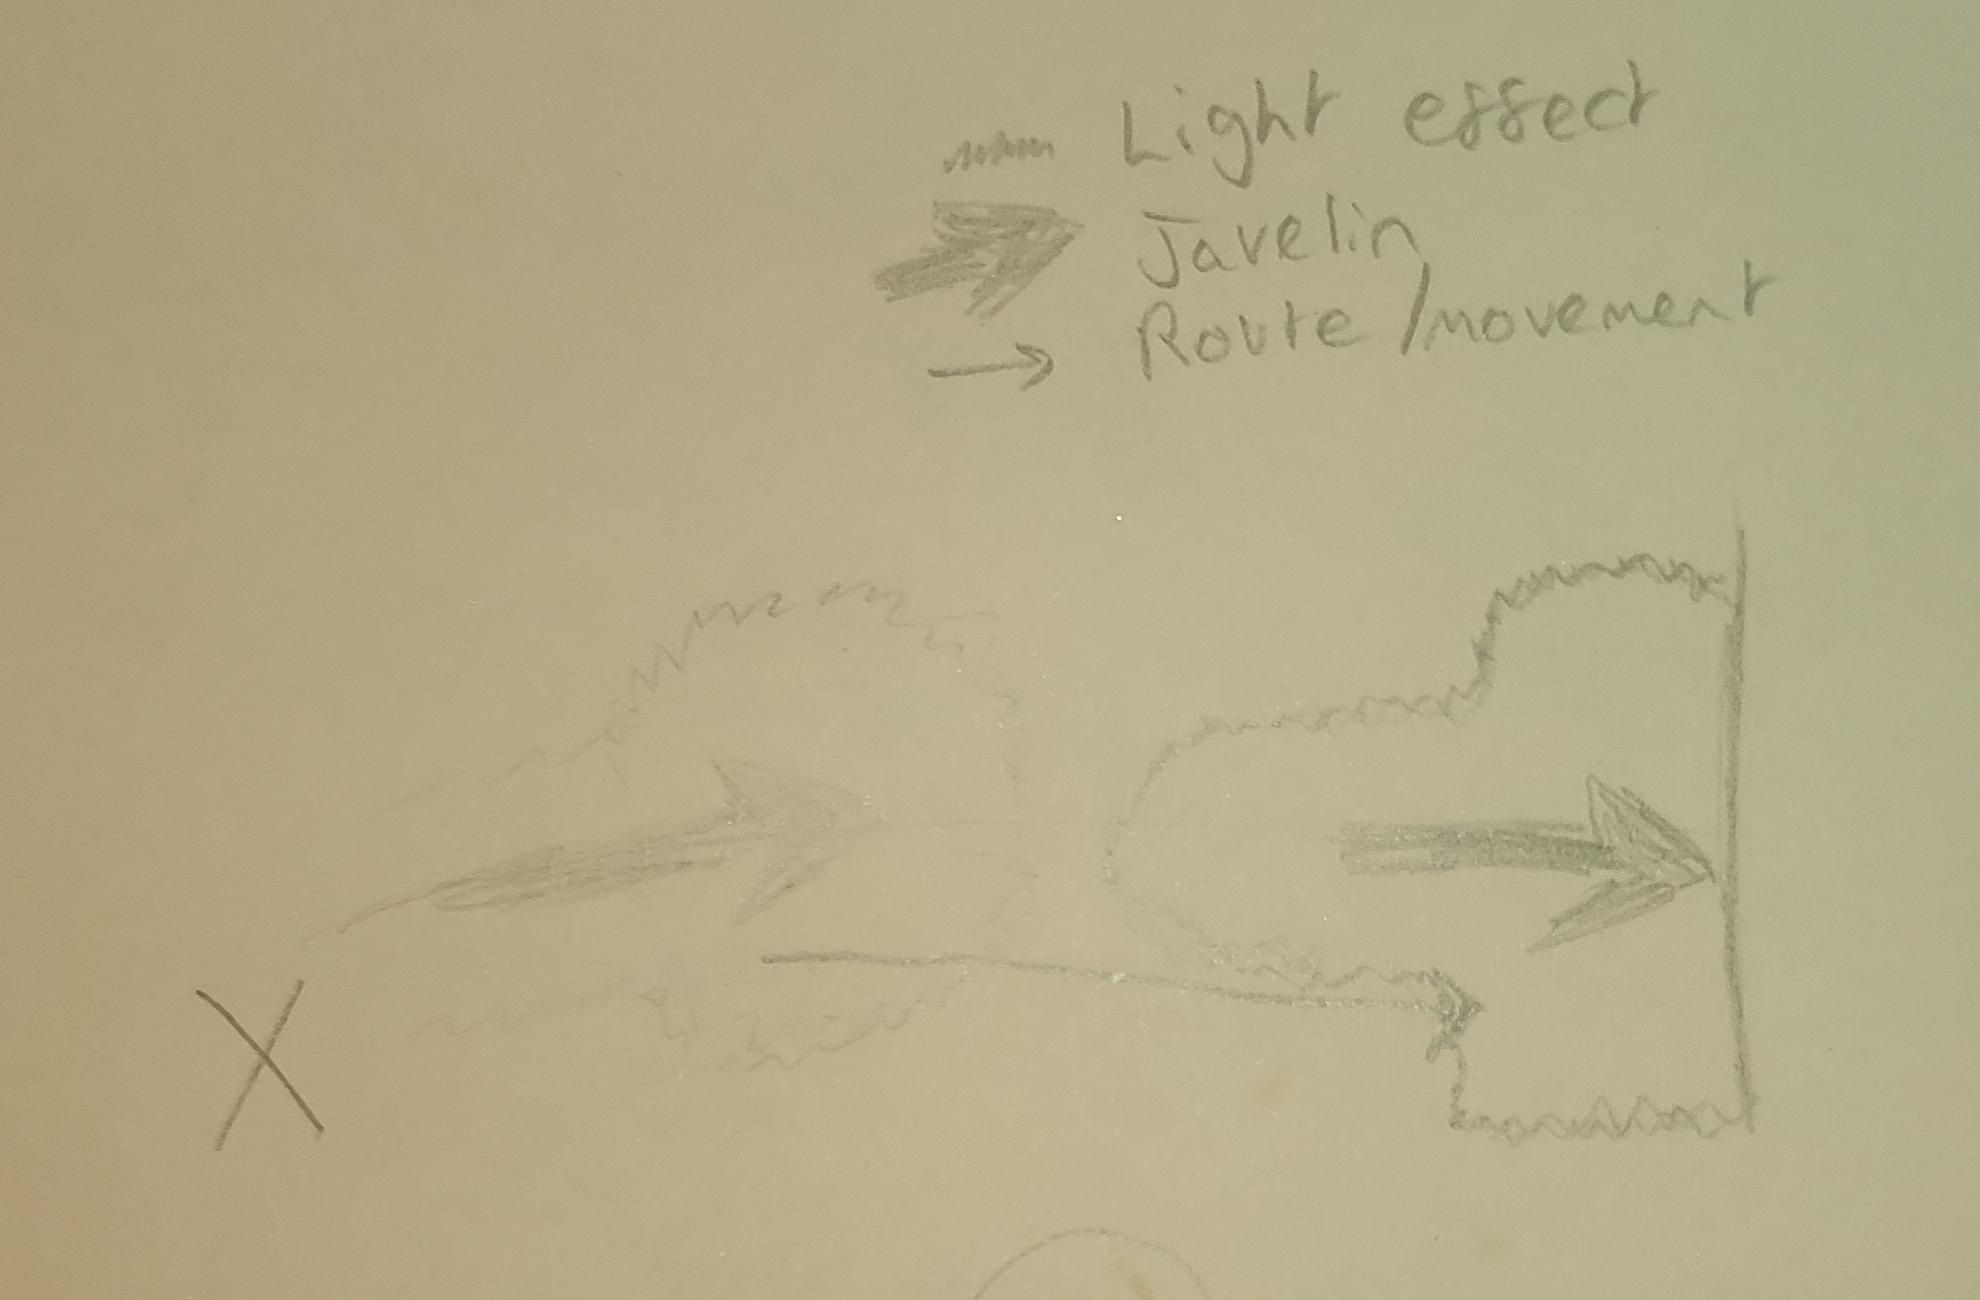 Light effect
Javelin
Route/movement
X